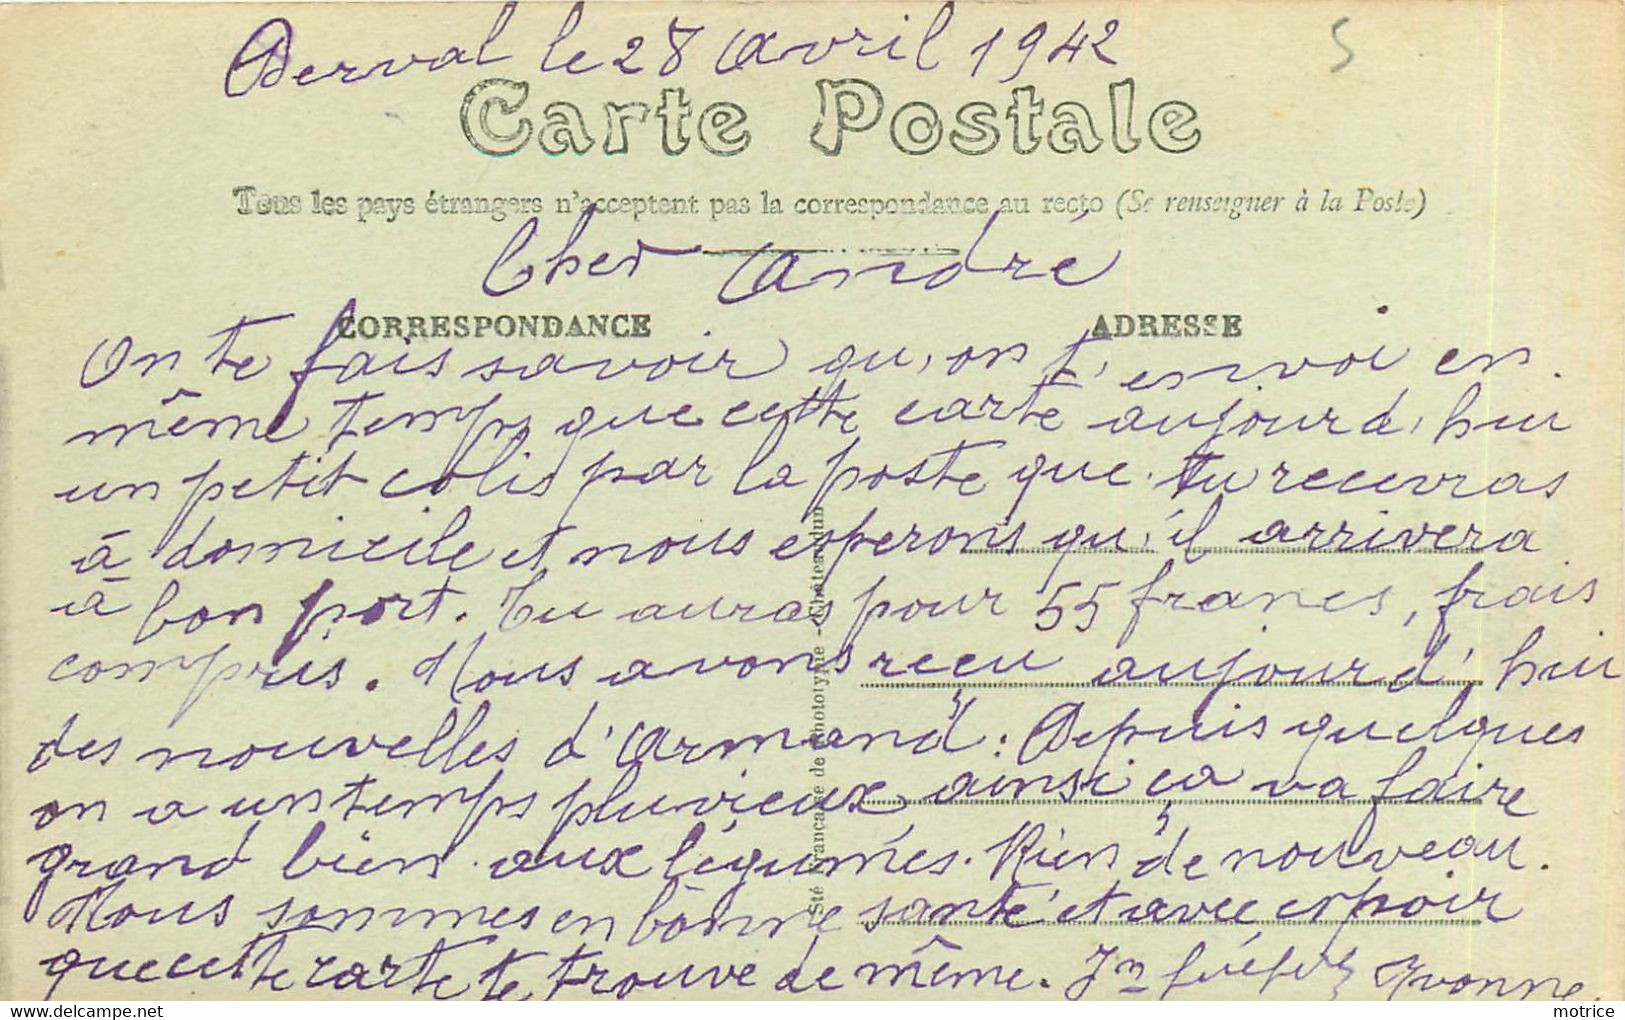 Derval le 28 Avril 1942
5
Carte Postale
Tous les pays étrangers n'acceptent pas la correspondance au recto (Se renseigner à la Poste)
Cher André
CORRESPONDANCE
ADRESSE
On te fais savoir qu, on t'envoi en
même temps que cette carte aujourd, hui
un petit colis par la poste que tu recevras
à domicile et nous esperons qu, il arrivera
à bon port. Tu auras pour 55 francs, frais
compris. Nous avons recu aujourd' hui
des nouvelles d'Armand. Depuis quelques
on a un temps pluvieux ainsi ca va faire
grand bien aux légumes. Rien de nouveau.
Nous sommes en bonne santé et avec espoir
que cette carte te trouve de même. Yvonne
Sté Française de Phototypie - Châteaudun
delcampe.net
motrice